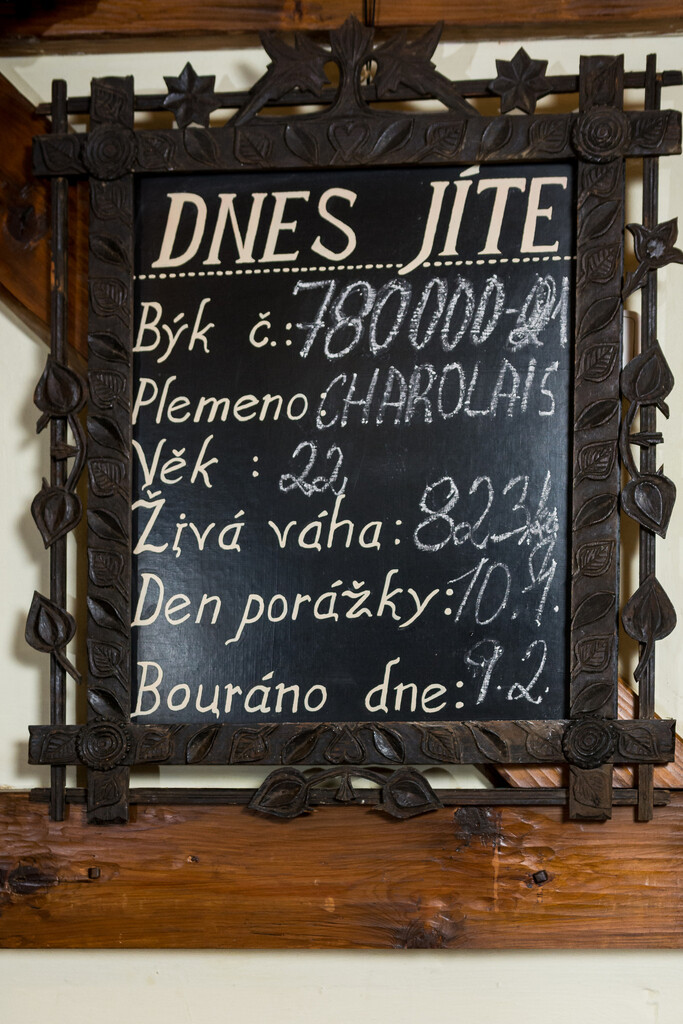 DNES JÍTE
Býk č.: 780000-21
Plemeno: CHAROLAIS
Věk : 22
Živá váha: 823kg
Den porážky: 10.9.
Bouráno dne: 9.2.